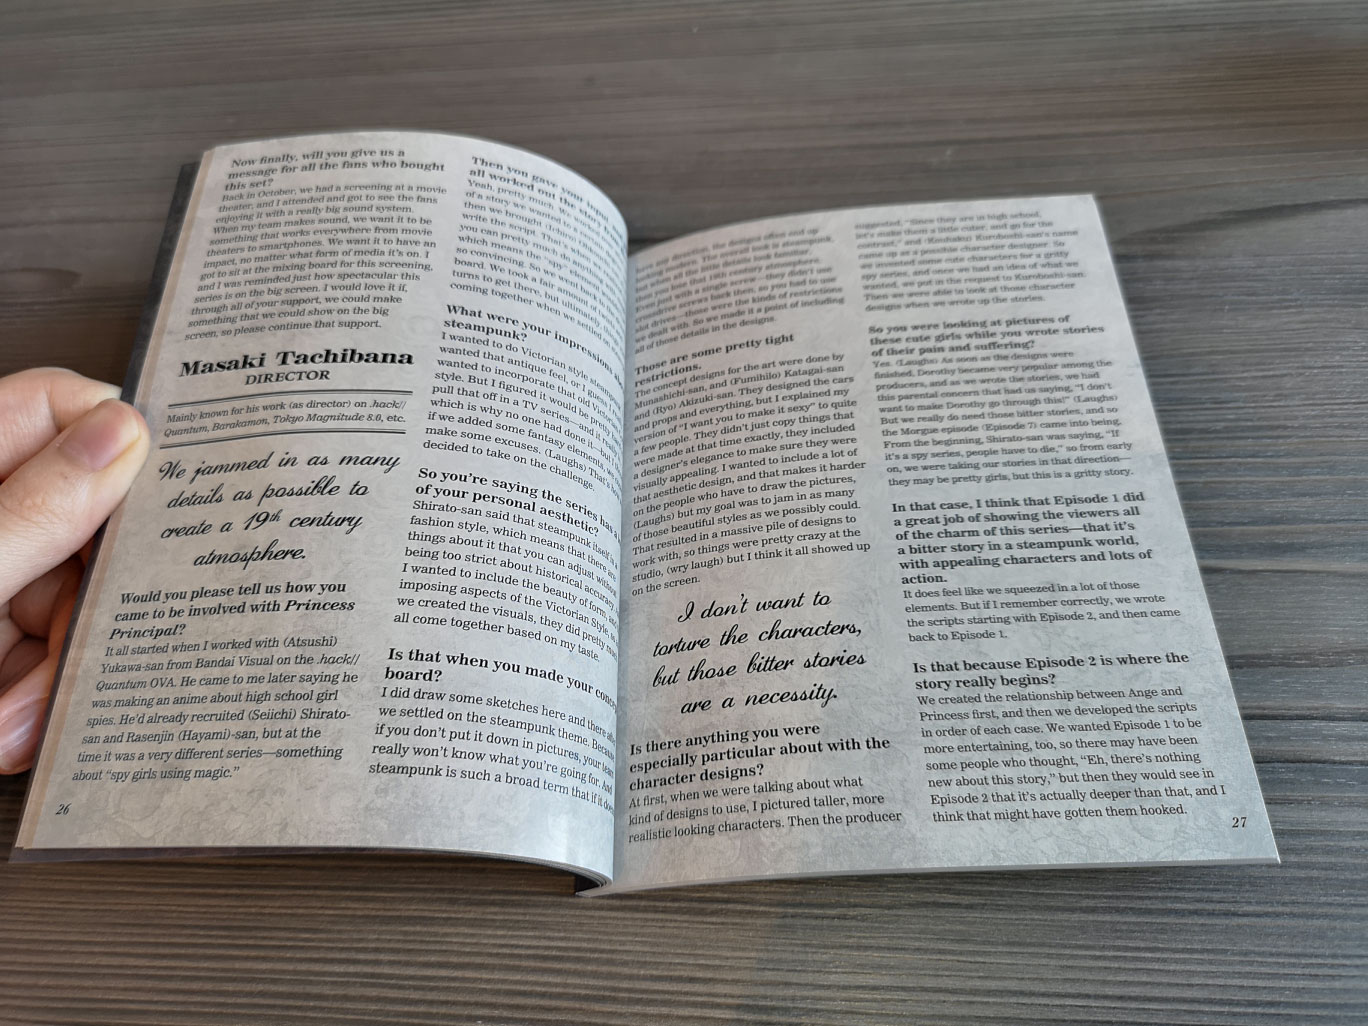 Now finally, will you give us a
message for all the fans who bought
this set?
Back in October, we had a screening at a movie
theater, and I attended and got to see the fans
enjoying it with a really big sound system.
When my team makes sound, we want it to be
something that works everywhere from movie
theaters to smartphones. We want it to have an
impact, no matter what form of media it's on. I
got to sit at the mixing board for this screening,
and I was reminded just how spectacular this
series is on the big screen. I would love it if,
through all of your support, we could make
something that we could show on the big
screen, so please continue that support.
Masaki Tachibana
DIRECTOR
Mainly known for his work (as director) on .hack//
Quantum, Barakamon, Tokyo Magnitude 8.0, etc.
We jammed in as many
details as possible to
create a 19th century
atmosphere.
Would you please tell us how you
came to be involved with Princess
Principal?
It all started when I worked with (Atsushi)
Yukawa-san from Bandai Visual on the .hack//
Quantum OVA. He came to me later saying he
was making an anime about high school girl
spies. He'd already recruited (Seiichi) Shirato-
san and Rasenjin (Hayami)-san, but at the
time it was a very different series—something
about "spy girls using magic."
26
Then you gave your input
all worked out the story
Yeah, pretty much. We
of a story we wanted to
then we brought (Ichiro)
write the script. That's when
you can pretty much do
which means the "spy"
so convincing. So we went back
board. We took a fair amount of
turns to get there, but ultimately
coming together when we settled on
What were your impressions
steampunk?
I wanted to do Victorian style steampunk
wanted that antique feel, or I guess
wanted to incorporate that old Victorian
style. But I figured it would be pretty
pull that off in a TV series—and it really
which is why no one had done it—but
if we added some fantasy elements, we
make some excuses. (Laughs) That's
decided to take on the challenge.
So you're saying the series has a
of your personal aesthetic?
Shirato-san said that steampunk itself is a
fashion style, which means that there are
things about it that you can adjust without
being too strict about historical accuracy.
I wanted to include the beauty of form, and
imposing aspects of the Victorian Style, so
we created the visuals, they did pretty much
all come together based on my taste.
Is that when you made your concept
board?
I did draw some sketches here and there after
we settled on the steampunk theme. Because
if you don't put it down in pictures, your team
really won't know what you're going for. And
steampunk is such a broad term that if it
the designs often end up
The overall look is steampunk,
but when all the little details look familiar,
then you lose that 19th century atmosphere.
Even just with a single screw—they didn't use
crossdrive screws back then, so you had to use
slot drives—those were the kinds of restrictions
we dealt with. So we made it a point of including
all of those details in the designs.
Those are some pretty tight
restrictions.
The concept designs for the art were done by
Munashichi-san, and (Fumihilo) Katagai-san
and (Ryo) Akizuki-san. They designed the cars
and props and everything, but I explained my
version of "I want you to make it sexy" to quite
a few people. They didn't just copy things that
were made at that time exactly, they included
a designer's elegance to make sure they were
visually appealing. I wanted to include a lot of
that aesthetic design, and that makes it harder
on the people who have to draw the pictures,
(Laughs) but my goal was to jam in as many
of those beautiful styles as we possibly could.
That resulted in a massive pile of designs to
work with, so things were pretty crazy at the
studio, (wry laugh) but I think it all showed up
on the screen.
I don't want to
torture the characters,
but those bitter stories
are a necessity.
Is there anything you were
especially particular about with the
character designs?
At first, when we were talking about what
kind of designs to use, I pictured taller, more
realistic looking characters. Then the producer
suggested, "Since they are in high school,
let's make them a little cuter, and go for the
contrast," and (Kouhaku) Kuroboshi-san's name
came up as a possible character designer. So
we invested some cute characters for a gritty
spy series, and once we had an idea of what we
wanted, we put in the request to Kuroboshi-san.
Then we were able to look at those character
designs when we wrote up the stories.
So you were looking at pictures of
these cute girls while you wrote stories
of their pain and suffering?
Yes. (Laughs) As soon as the designs were
finished, Dorothy became very popular among the
producers, and as we wrote the stories, we had
this parental concern that had us saying, "I don't
want to make Dorothy go through this!" (Laughs)
But we really do need those bitter stories, and so
the Morgue episode (Episode 7) came into being.
From the beginning, Shirato-san was saying, "If
it's a spy series, people have to die," so from early
on, we were taking our stories in that direction—
they may be pretty girls, but this is a gritty story.
In that case, I think that Episode 1 did
a great job of showing the viewers all
of the charm of this series—that it's
a bitter story in a steampunk world,
with appealing characters and lots of
action.
It does feel like we squeezed in a lot of those
elements. But if I remember correctly, we wrote
the scripts starting with Episode 2, and then came
back to Episode 1.
Is that because Episode 2 is where the
story really begins?
We created the relationship between Ange and
Princess first, and then we developed the scripts
in order of each case. We wanted Episode 1 to be
more entertaining, too, so there may have been
some people who thought, "Eh, there's nothing
new about this story," but then they would see in
Episode 2 that it's actually deeper than that, and I
think that might have gotten them hooked.
27